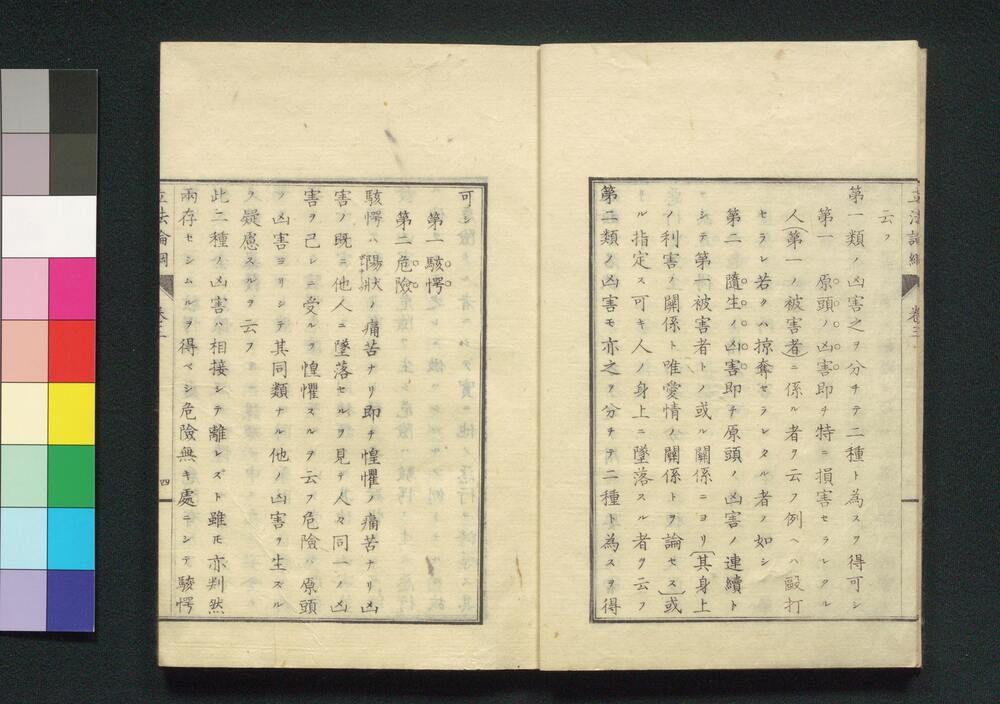 云フ
第一類ノ凶害之ヲ分チテ二種ト為スヿ得可シ
第一 原頭ノ凶害即チ特ニ損害セラレタル
人(第一ノ被害者)ニ係ル者ヲ云フ例ヘハ毆打
セラレ若クハ掠奪セラレタル者ノ如シ
第二 隨生ノ凶害即チ原頭ノ凶害ノ連續ト
シテ第一被害者トノ或ル關係ニヨリ[其身上
ノ利害ノ關係ト唯愛情ノ關係トヲ論セス]或
ル指定ス可キ人ノ身上ニ墜落スル者ヲ云フ
第二類ノ凶害モ亦之ヲ分チテ二種ト為スヿ得
立法論綱 卷三
可シ
第一 駭愕
第二 危險
駭愕ハ陽狀ノ痛苦ナリ即チ惶懼ノ痛苦ナリ凶
害ノ既ニ他人ニ墜落セルヲ見テ人々同一ノ凶
害ヲ己レニ受ルヲ惶懼スルヲ云フ危險ハ原頭
ノ凶害ヨリシテ其同類ナル他ノ凶害ヲ生ズル
ヲ疑慮スルヲ云フ
此二種ノ凶害ハ相接シテ離レズト雖モ亦判然
兩存セシムルヲ得ベシ危險無キ處ニシテ駭愕
立法論綱 卷三 四